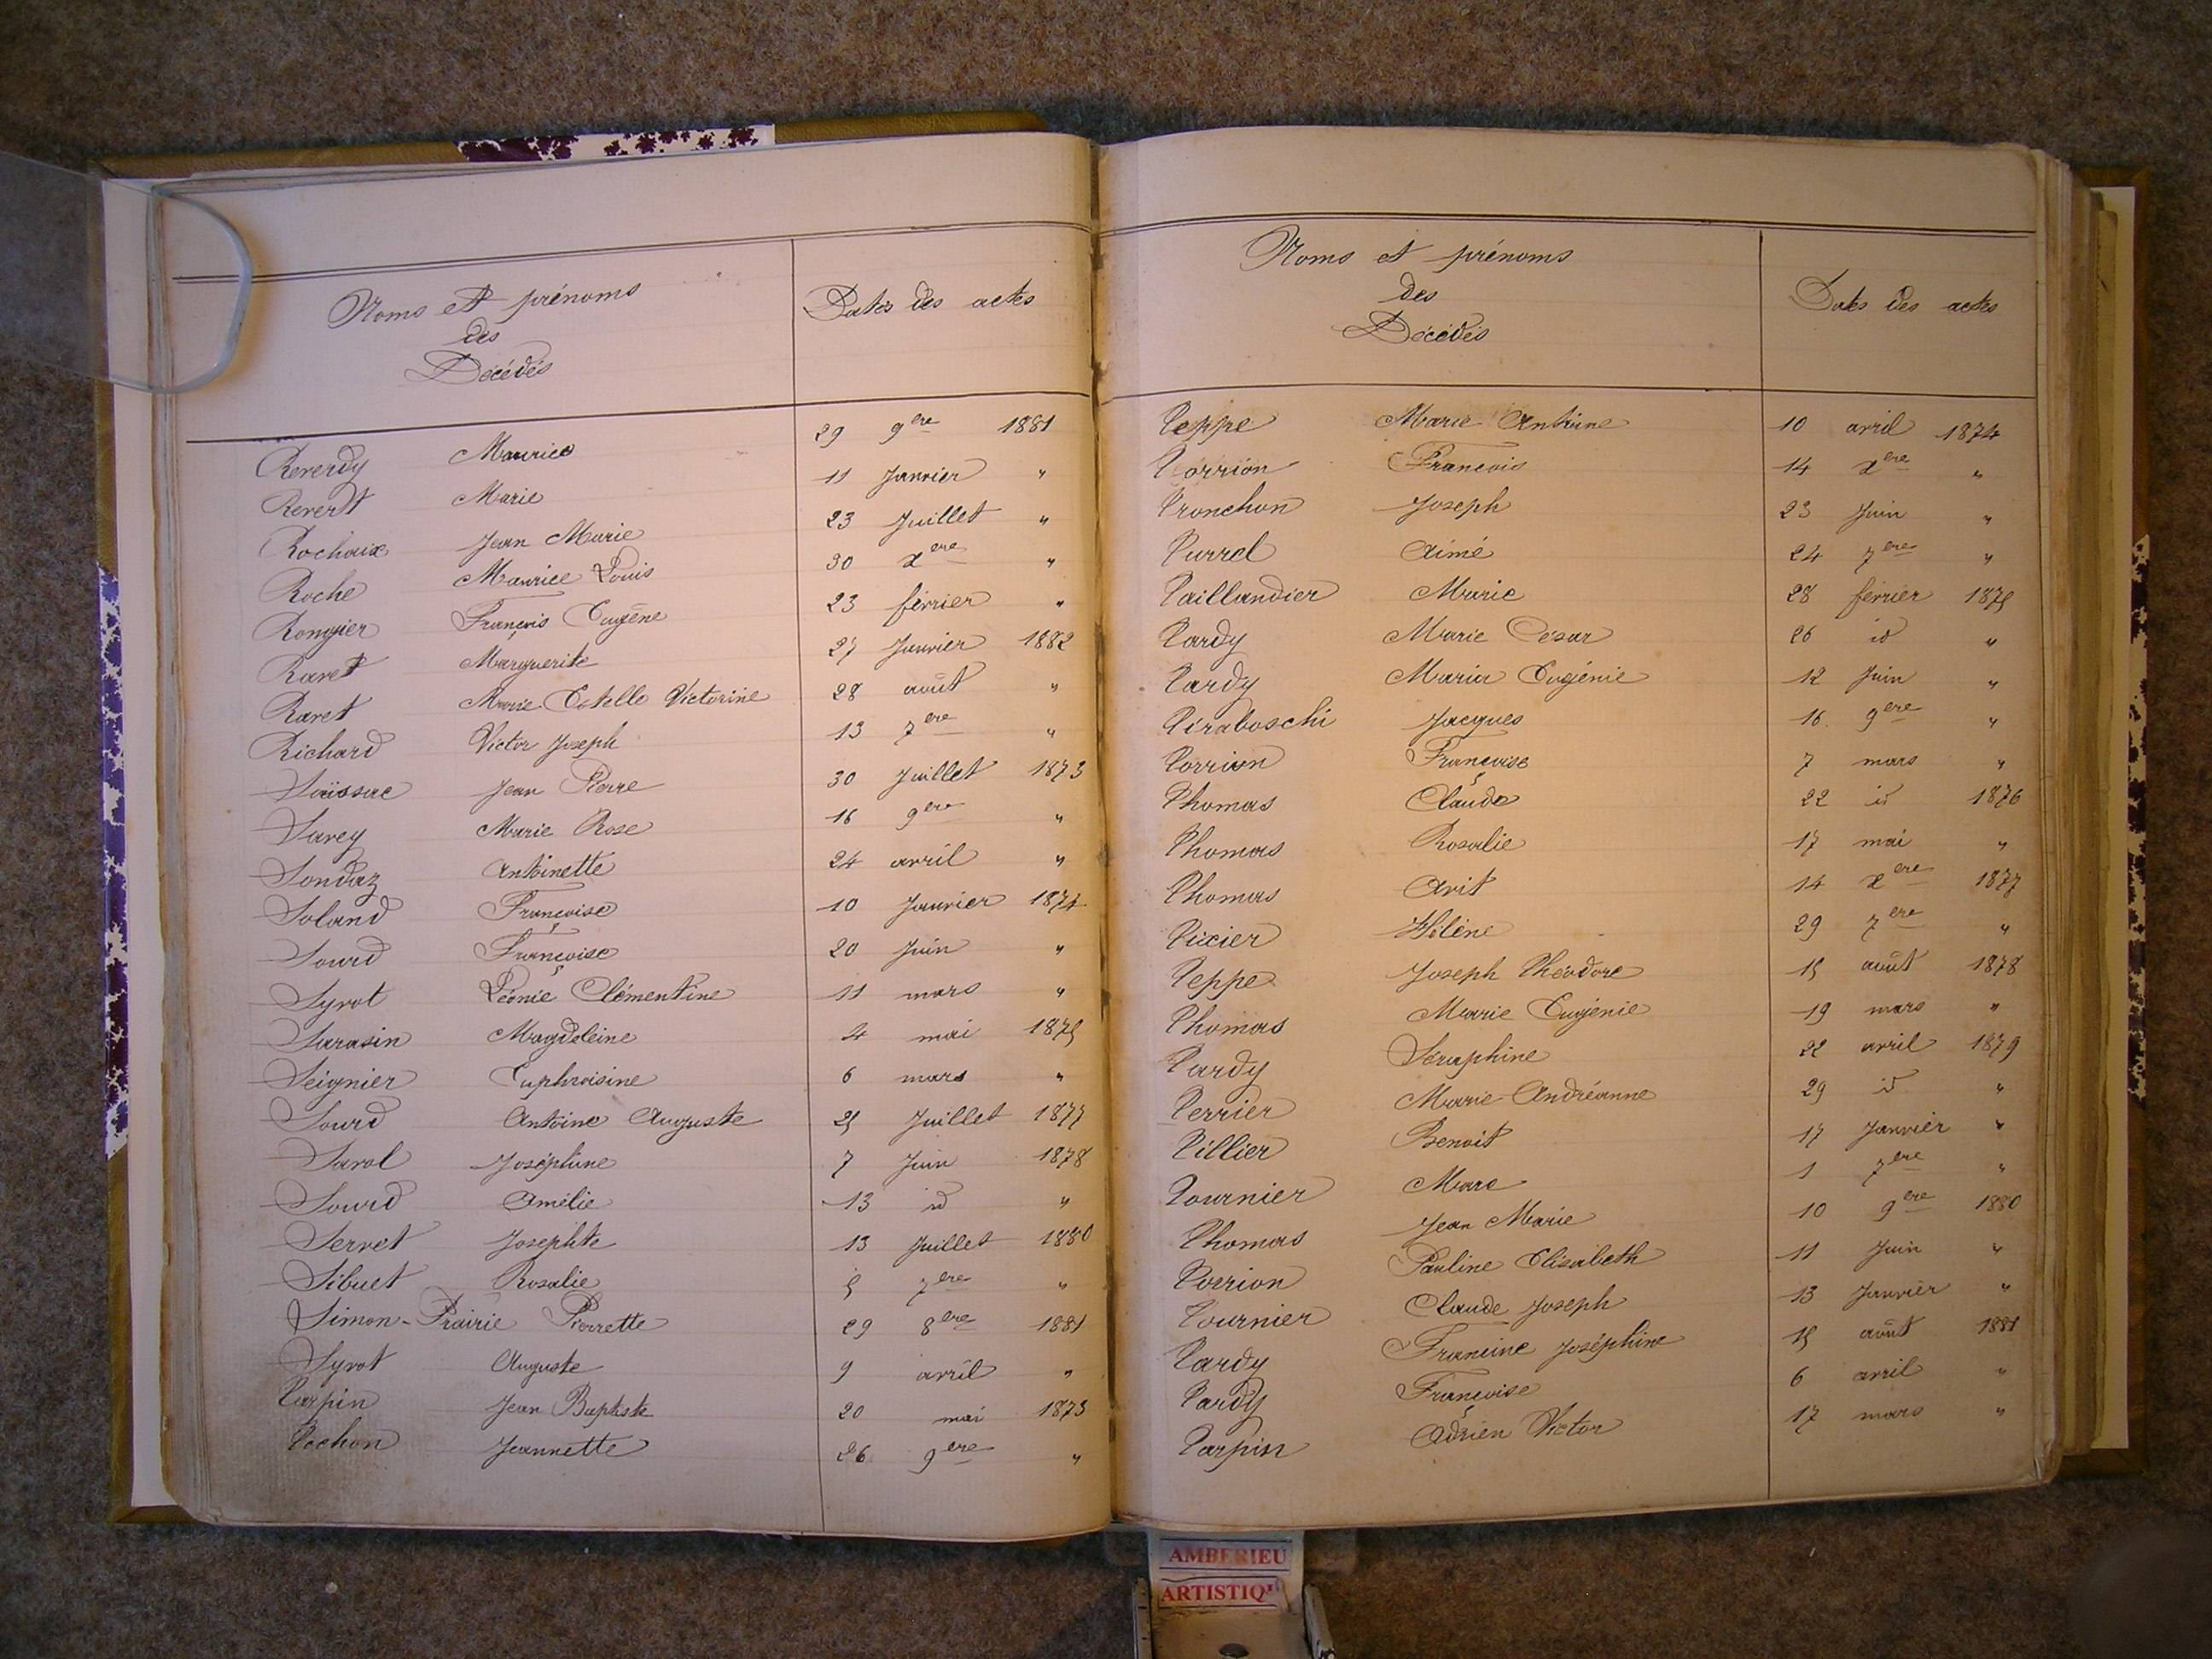 Noms et prénoms
des
Décédés
Dates des actes
Reverdy Maurice 29 9ere 1881
Revert Marie 11 Janvier "
Rochaix Jean Marie 23 Juillet "
Roche Maurice Louis 30 xere "
Rongier François Eugène 23 février "
Ravet Marguerite 27 Janvier 1882
Ravet Marie Estelle Victorine 28 août "
Richard Victor Joseph 13 7ere "
Saïssac Jean Pierre 30 Juillet 1873
Savey Marie Rose 16 9ere "
Sondaz Antoinette 24 avril "
Soland Françoise 10 Janvier 1874
Sourd Françoise 20 Juin "
Syrot Léonie Clémentine 11 mars "
Sarasin Magdeleine 4 mai 1875
Seignier Euphroisine 6 mars "
Sourd Antoine Auguste 25 Juillet 1877
Sarol Joséphine 7 Juin 1878
Sourd Amélie 13 id "
Servet Josephte 13 Juillet 1880
Sibuet Rosalie 5 7ere "
Simon-Prairie Pierrette 29 8bre 1881
Syrot Auguste 9 avril "
Tarpin Jean Baptiste 20 mai 1873
Tochon Jeannette 26 9ere "
Noms et prénoms
des
Décédés
Dates des actes
Teppe Marie Antoine 10 avril 1874
Torrion François 14 xere "
Tronchon Joseph 23 Juin "
Turrel Aimé 24 7ere "
Taillandier Marie 28 février 1875
Tardy Marie César 26 id "
Tardy Maria Eugénie 12 Juin "
Tiraboschi Jacques 16 9ere "
Torrion Françoise 7 mars "
Thomas Claude 22 id 1876
Thomas Rosalie 17 mai "
Thomas Avit 14 xere 1877
Tixier Hélène 29 7ere "
Teppe Joseph Théodore 15 août 1878
Thomas Marie Eugénie 19 mars "
Tardy Séraphine 22 avril 1879
Terrier Marie-Andréanne 29 id "
Tillier Benoit 17 Janvier "
Tournier Marc 1 7ere "
Thomas Jean Marie 10 9ere 1880
Torrion Pauline Elisabeth 11 Juin "
Tournier Claude Joseph 13 Janvier "
Tardy Francine Joséphine 15 août 1881
Tardy Françoise 6 avril "
Tarpin Adrien Victor 17 mars "
AMBERIEU
ARTISTIQ